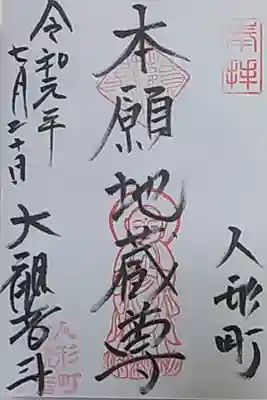 奉拝
人形町
本願地蔵尊
大観音寺
令和元年
七月二十日